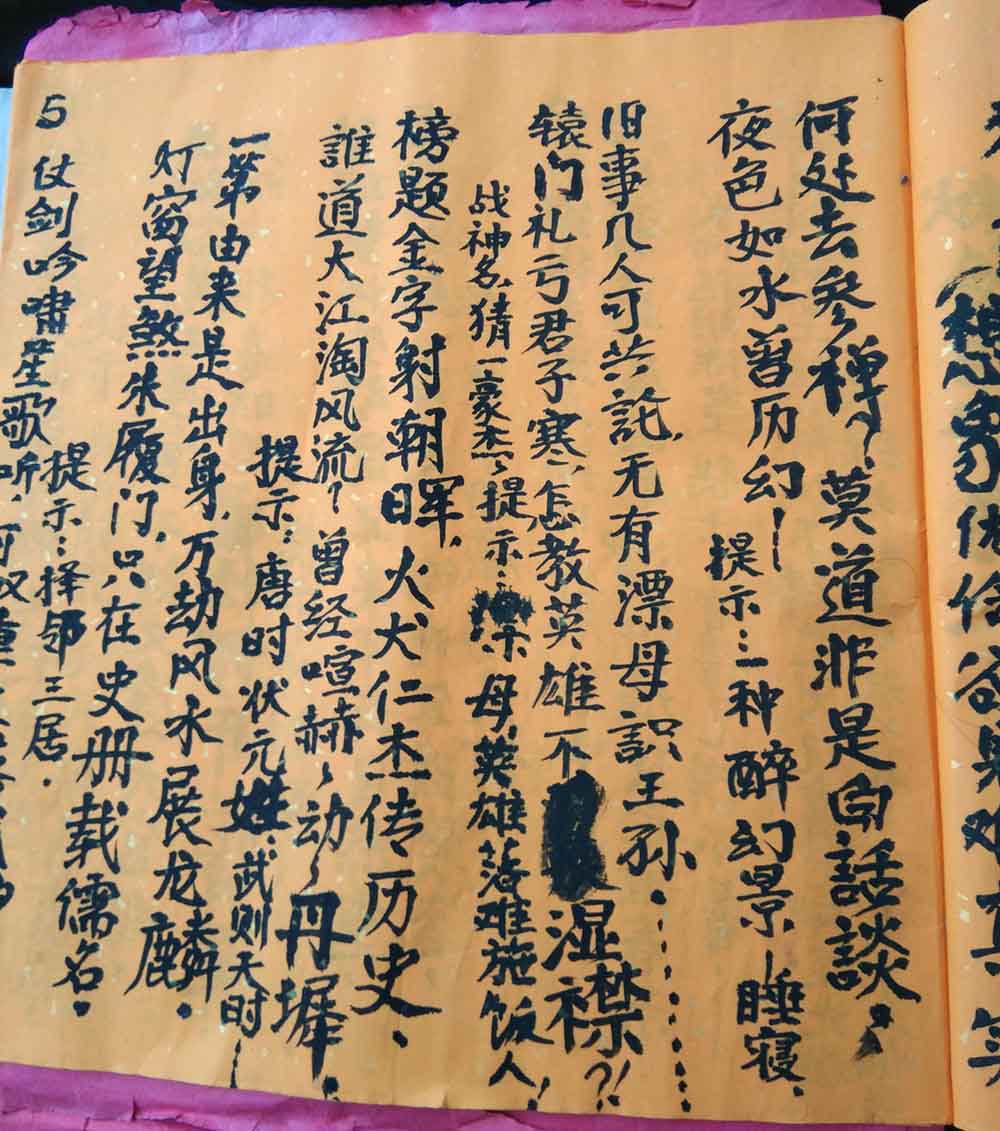 何处去参禅、莫道非是白话談。
夜色如水曾历幻！提示：一种醉幻景！睡寝
旧事几人可共託，无有漂母识王孙……
辕门礼亏君子寒，怎教英雄不湿襟?!
战神名，猜一豪杰、提示：漂母，英雄落难施饭人！
榜题金字射朝晖，火犬仁杰传历史、
誰道大江淘风流？曾经喧赫、动、丹墀.
提示：唐时状元姓，武则天时！
一第由来是出身，万劫风水展龙麟。
灯窗望煞朱履门，只在史册载儒名。
提示：择邻三居.
5 仗剑吟啸笙歌听，
想象